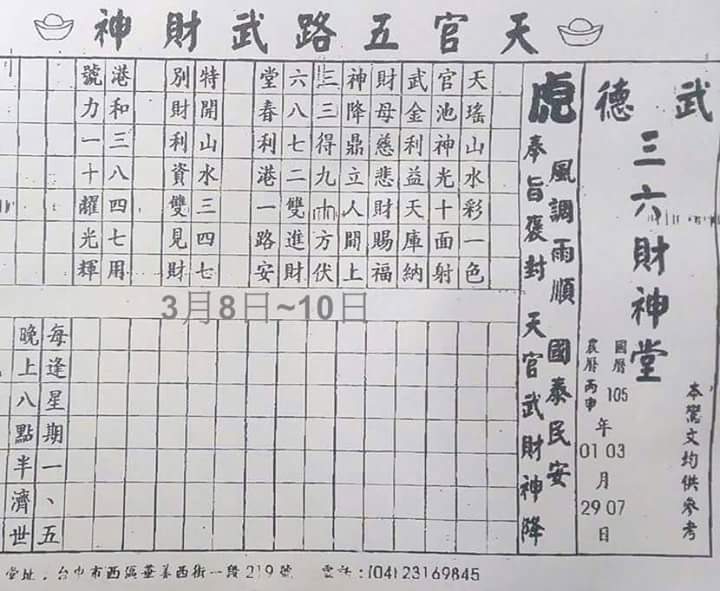 天官五路武財神
武德
三六財神堂
國曆105年03月07日
農曆丙申年01月29日
本鸞文均供參考
虎
風調雨順 國泰民安
奉旨褒封 天官武財神降
天瑤山水彩一色
官池神光十面射
武金利益天庫納
財母慈悲財賜福
神降鼎立人間上
三三得九方伏
六八七二雙進財
堂春利港一路安
特開山水三四七
別財利資雙見財
港和三八四七用
號力一十耀光輝
3月8日~10日
每逢星期一、五
晚上八點半濟世
堂址:台中市西區華美西街一段219號 電話:(04)23169845